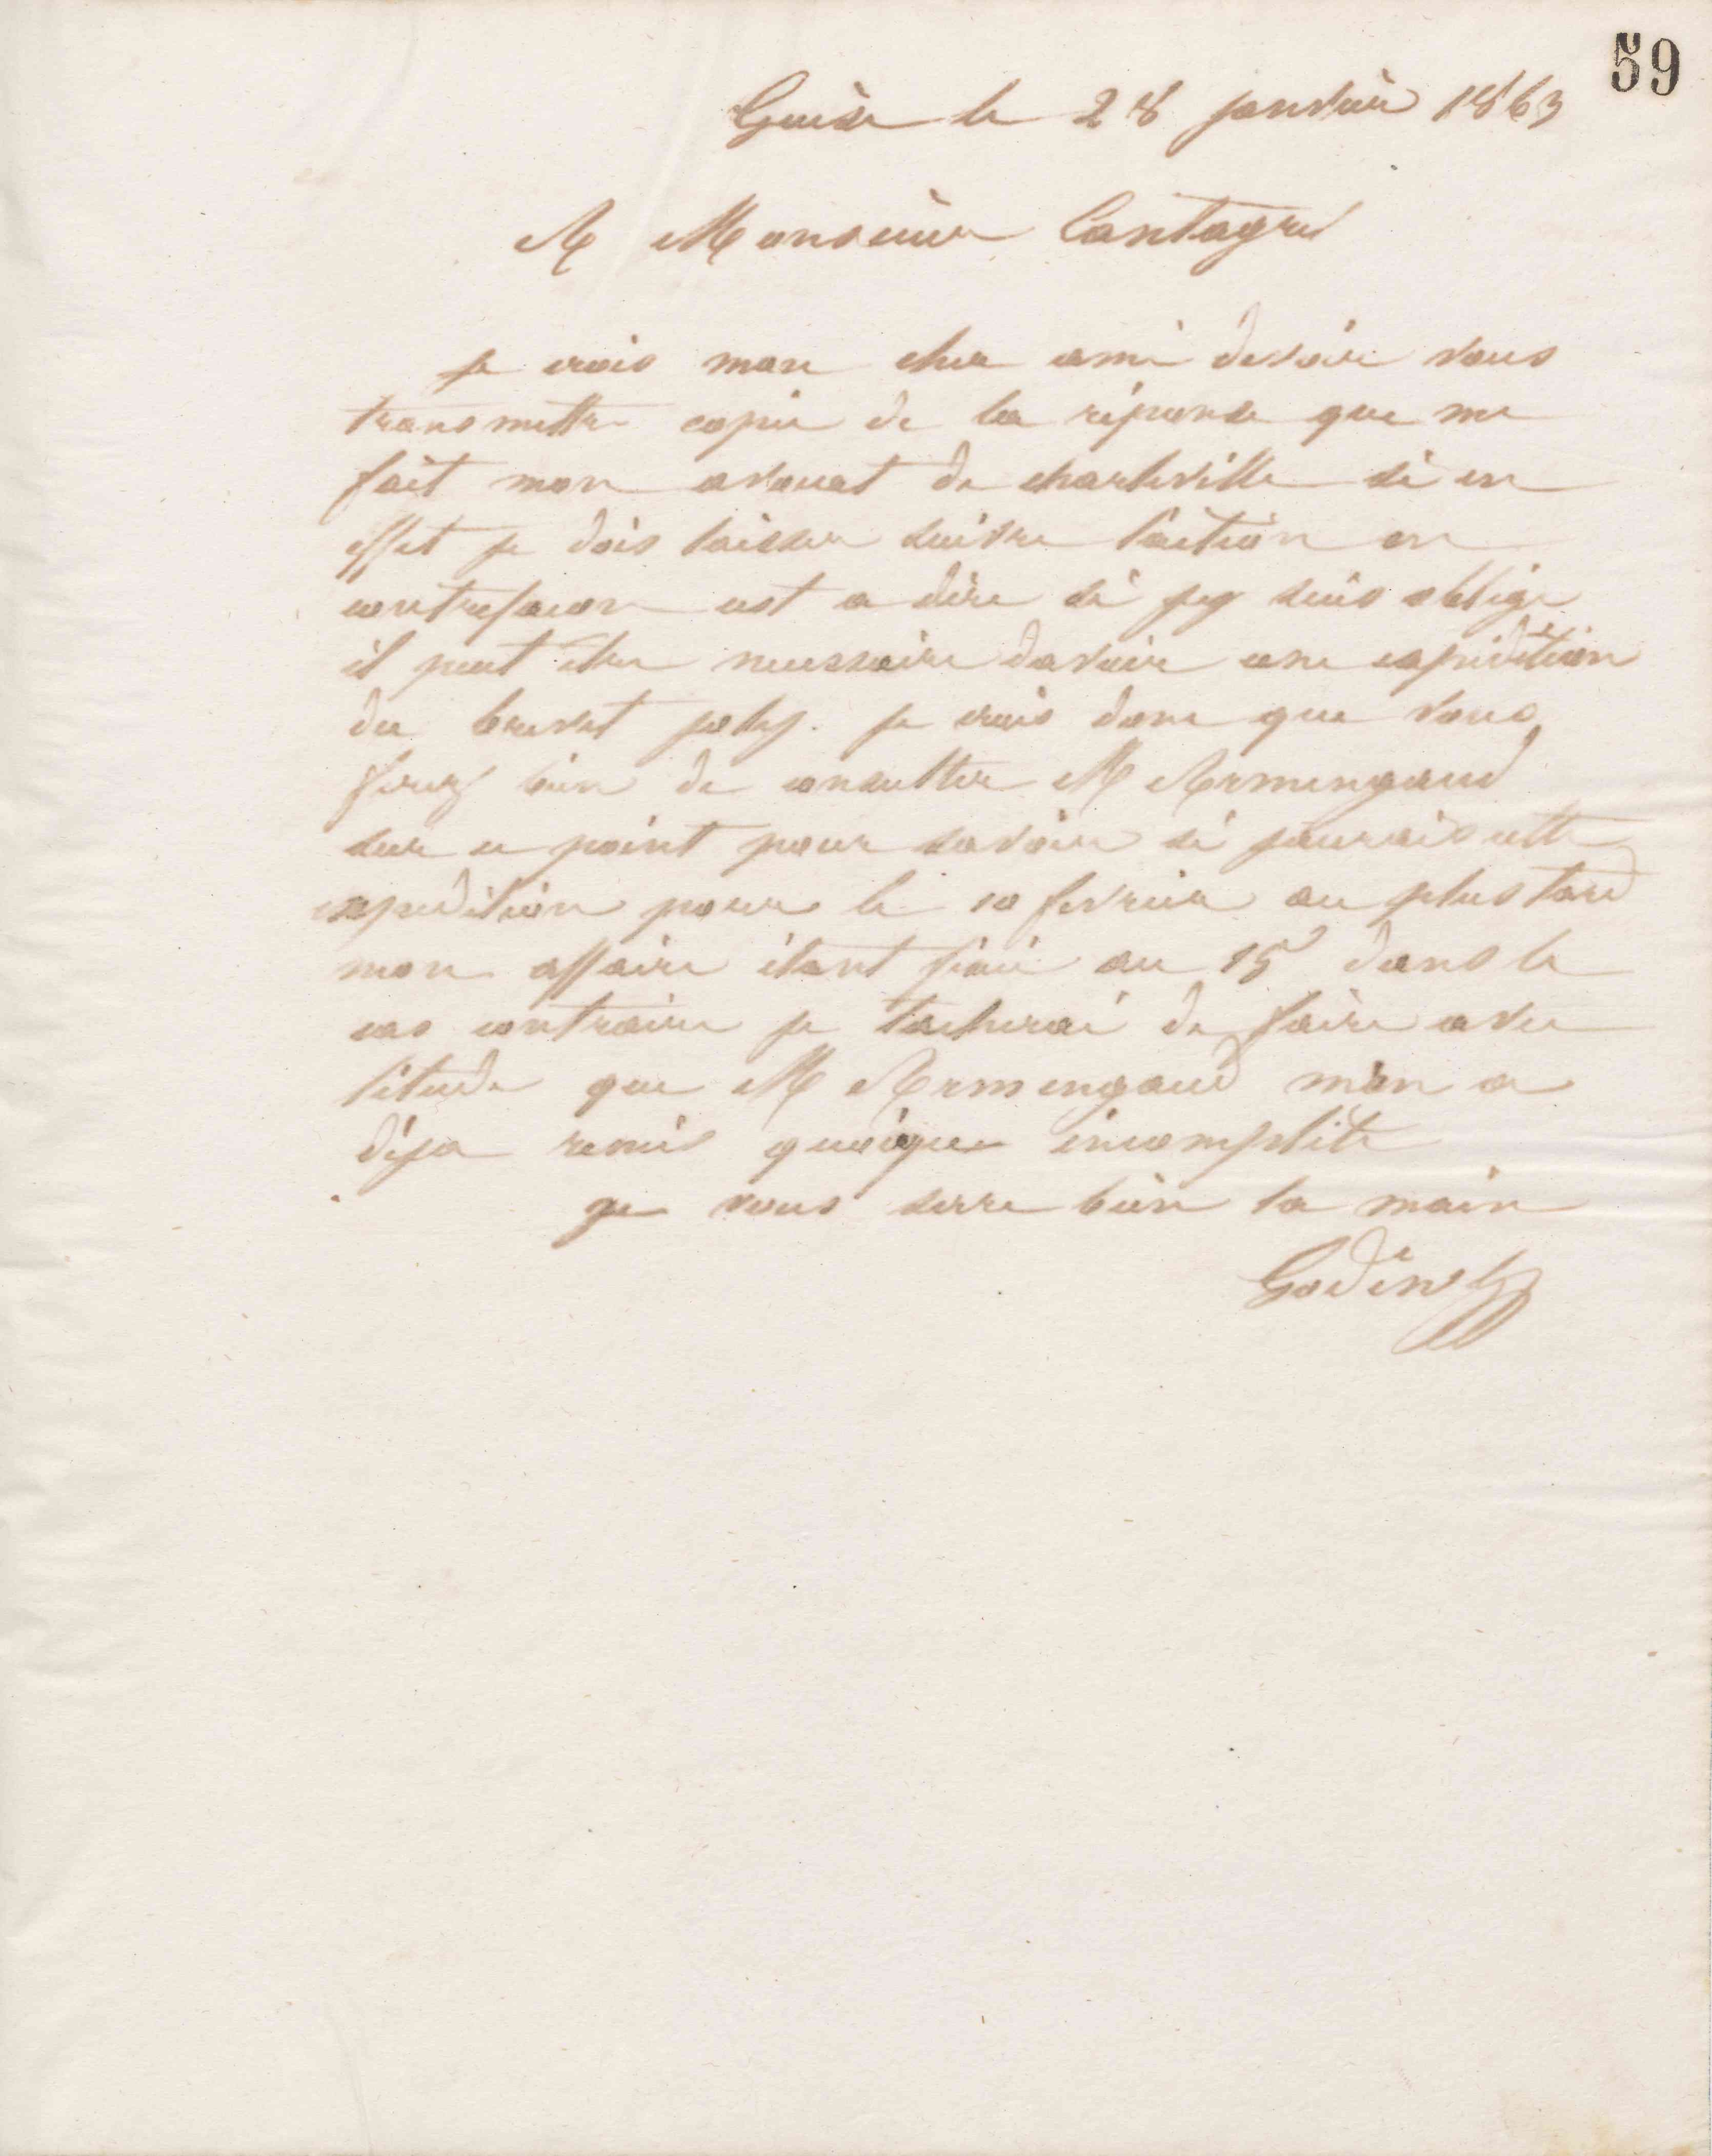 59
Guise le 28 janvier 1863
A Monsieur Cantagrel
je crois mon cher ami devoir vous
transmettre copie de la réponse que me
fait mon avouat de charleville si en
effet je dois laisser suivre l'action en
contrefacon cest a dire si jy suis obligé
il peut être necessaire davoir une expédition
du brevet joly. je crois donc que vous
ferez bien de consulter M Armengaud
sur ce point pour savoir si jaurais cette
expedition pour le 10 fevrier au plus tard
mon affaire étant fixée au 15 dans le
cas contraire je tacherai de faire avec
l'étude que M Armengaud m'en a
déja remis quoique incomplète
je vous serre bien la main
Godin